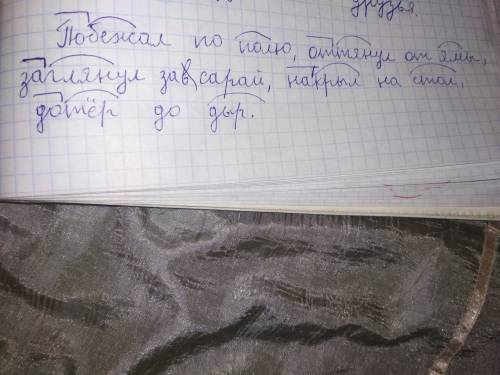 друзья.
Побежал по полю, оттянул от ямы,
заглянул за сарай, накрыл на стол,
дотёр до дыр.